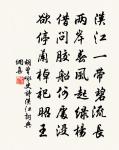 漢江一帶碧流長
兩岸春風起綠楊
借問膠船何處沒
欲停蘭棹祀昭王
胡曾詠史詩漢江